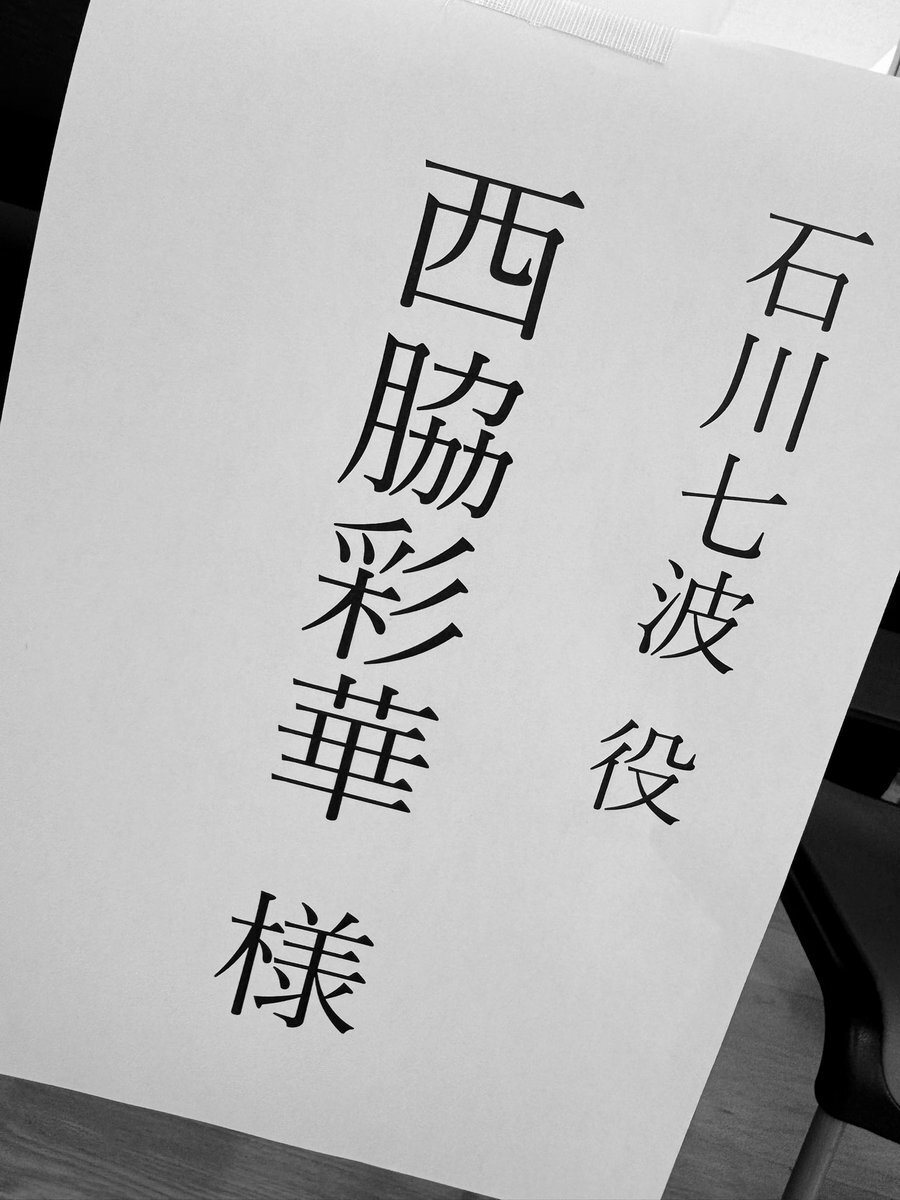 石川七波 役
西脇彩華 様